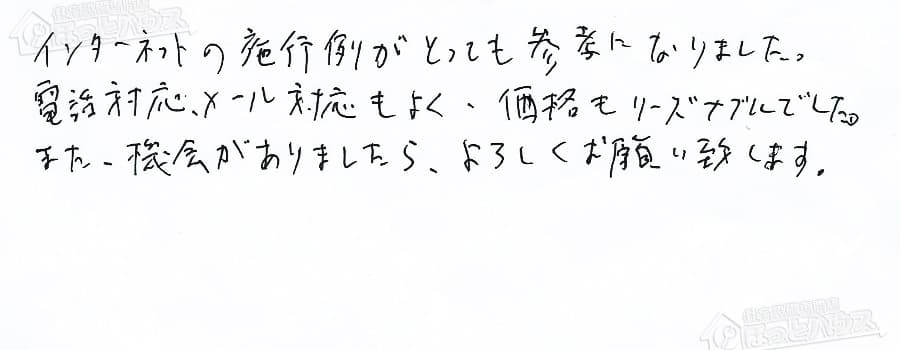 インターネットの施行例がとっても参考になりました。
電話対応、メール対応もよく、価格もリーズナブルでした。
また、機会がありましたら、よろしくお願い致します。
ほっとハウス